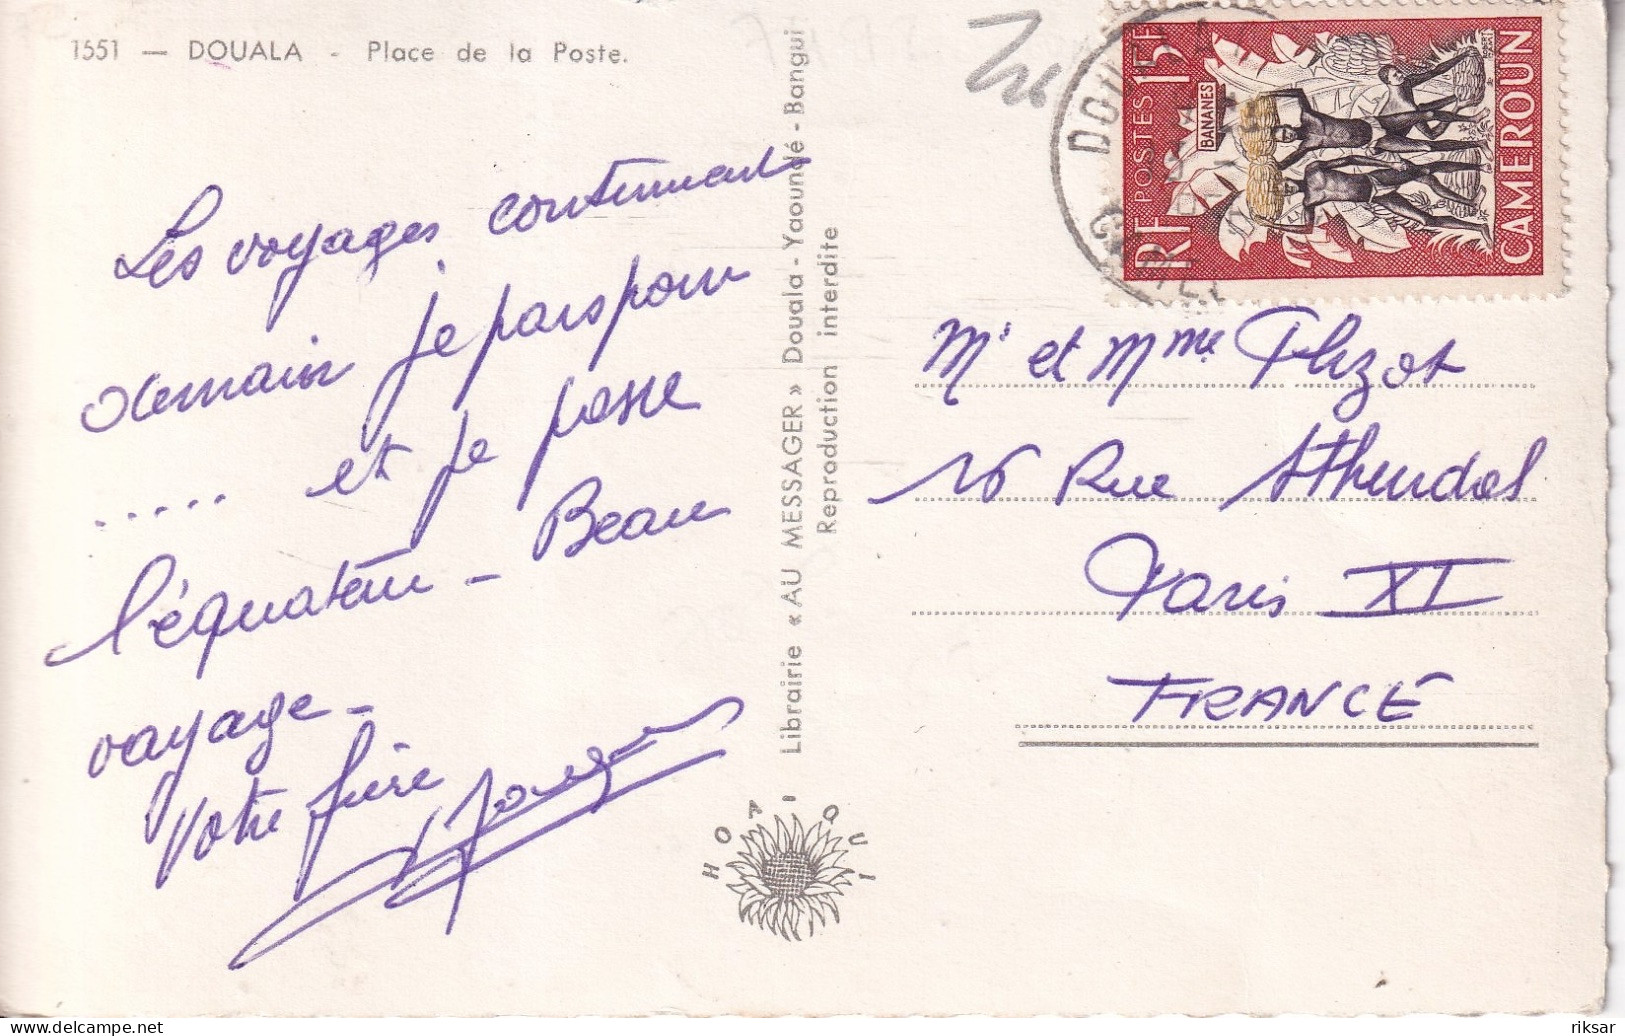 1551 — DOUALA - Place de la Poste.
Les voyages continuent
demain je pars pour
..... et je passe
l'équateur - Beau
voyage -
Votre frère
Librairie « AU MESSAGER » Douala - Yaoundé - Bangui
Reproduction interdite
HOA-QUI
RF POSTES 15F
BANANES
CAMEROUN
DOUALA
Mr et Mme
16 Rue
Paris XI
FRANCE
riksar